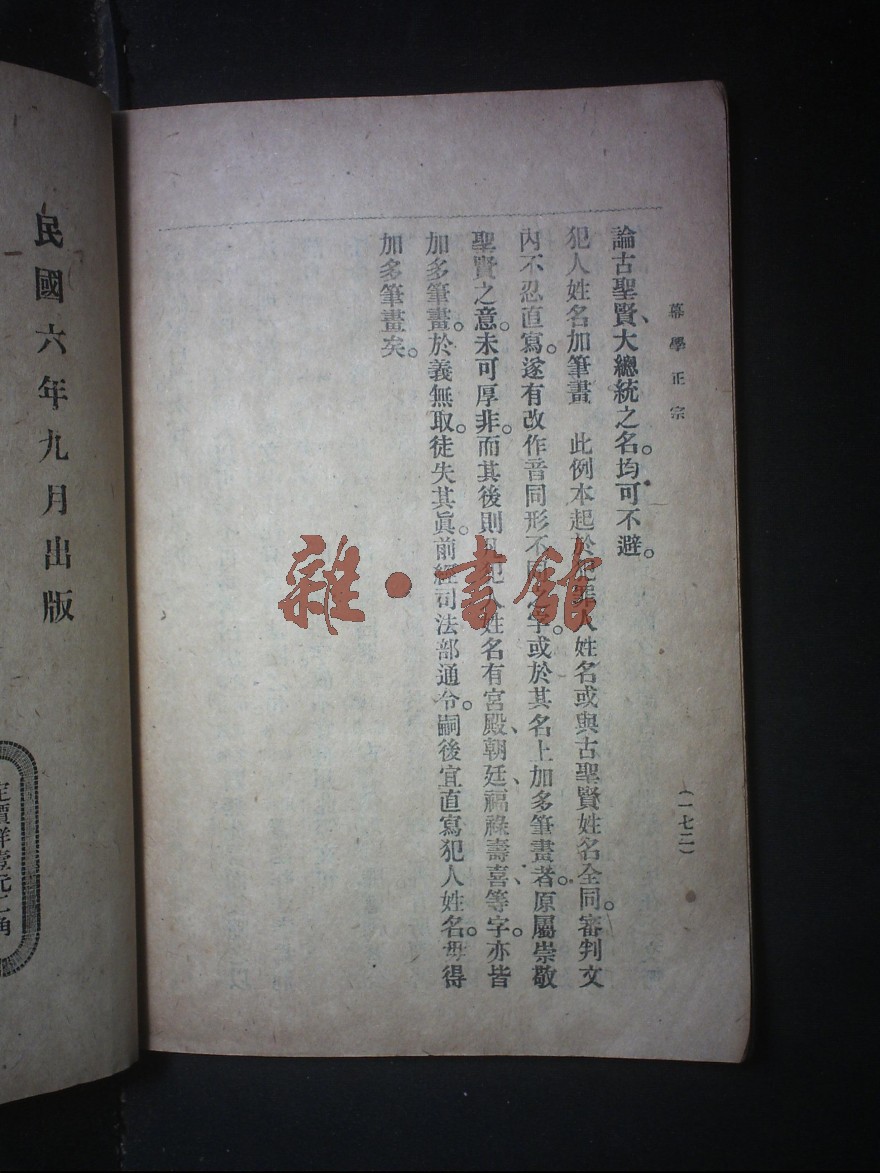 幕學正宗
(一七二)
論古聖賢、大總統之名。均可不避。
犯人姓名加筆畫　此例本起於犯罪人姓名或與古聖賢姓名全同。審判文
內不忍直寫。遂有改作音同形不字。或於其名上加多筆畫者。原屬崇敬
聖賢之意。未可厚非。而其後則犯人姓名有宮殿、朝廷、福祿壽喜、等字。亦皆
加多筆畫。於義無取。徒失其眞。前經司法部通令。嗣後宜直寫犯人姓名。毋得
加多筆畫矣。
雜·書館
民國六年九月出版
定價洋壹元二角